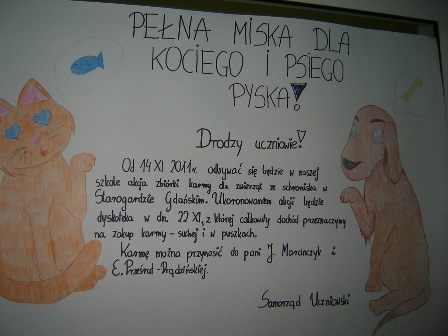 PEŁNA MISKA DLA
KOCIEGO I PSIEGO
PYSKA!
Drodzy uczniowie!
Od 14 XI 2011r. odbywać się będzie w naszej
szkole akcja zbiórki karmy dla zwierząt ze schroniska w
Starogardzie Gdańskim. Ukoronowaniem akcji będzie
dyskoteka w dn. 22 XI, z której całkowity dochód przeznaczymy
na zakup karmy - suchej i w puszkach.
Karmę można przynosić do pani J. Marańczyk i
E. Prądzińskiej.
Samorząd Uczniowski